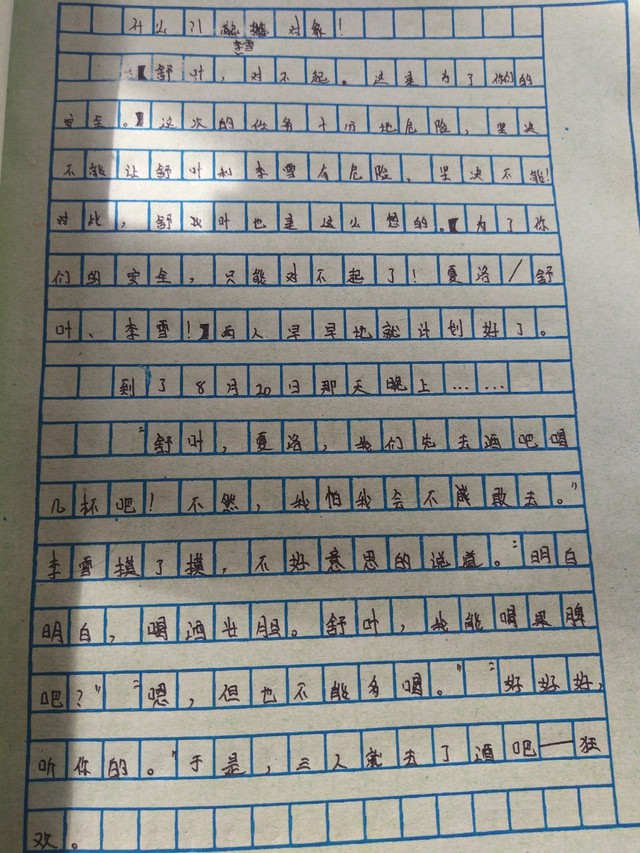 什么?! 对象!
李雪
舒叶,对不起。这是为了你们的
安全。这次的任务十万地危险,坚决
不能让舒叶和李雪有危险、坚决不能!
对此,舒叶也是这么想的。为了你
们的安全,只能对不起了!夏洛/舒
叶、李雪!两人早早地就计划好了。
到了8月20日那天晚上……
“舒叶,夏洛,我们先去酒吧喝
几杯吧!不然,我怕我会不敢去。”
李雪摸了摸,不好意思的说道。“明白
明白,喝酒壮胆。舒叶,我能喝果脾
吧?”“嗯,但也不能多喝。”“好好好,
听你的。”于是,三人就去了酒吧——狂
欢。